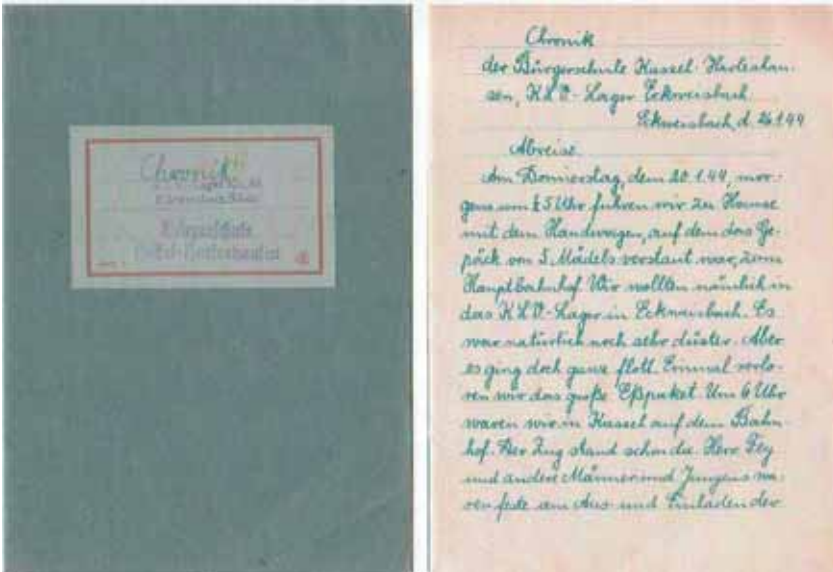 Chronik
Bürgerschule
Kassel-Harleshausen
Chronik
der Bürgerschule Kassel-Harleshau-
sen, KLV-Lager Eckweisbach
Eckweisbach, d. 26.1.44
Abreise.
Am Donnerstag, dem 20.1.44, mor-
gens um ½ 5 Uhr fuhren wir zu Hause
mit dem Handwagen, auf dem das Ge-
päck von 5 Mädels verstaut war, zum
Hauptbahnhof. Wir wollten nämlich in
das KLV-Lager in Eckweisbach. Es
war natürlich noch sehr düster. Aber
es ging doch ganz flott. Einmal verlo-
ren wir das große Eßpaket. Um 6 Uhr
waren wir in Kassel auf dem Bahn-
hof. Der Zug stand schon da. Herr Fey
und andere Männer und Jungens wa-
ren feste am Aus- und Einladen der